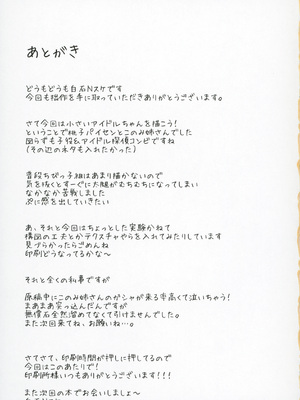 あとがき
どうもどうも白石Nスケです
今回も拙作を手に取っていただきありがとうございます。
さて今回は小さいアイドルちゃんを描こう!
ということで桃子パイセンとこのみ姉さんでした
図らずも子役&アイドル探偵コンビですね
(その辺のネタも入れたかった)
普段ちびっ子組はあまり描かないので
気を抜くとすーぐに太腿がむちむちになってしまい
なかなか苦戦しました
ぷに感を出していきたい
あ、それと今回はちょっとした実験かねて
構図の工夫とかテクスチャやらを入れてみたりしています
見づらかったらごめんね
印刷どうなってるかな～
それと全くの私事ですが
原稿中にこのみ姉さんのガシャが来る率高くて泣いちゃう!
まぁまぁ突っ込んだんですが
無償石全然溜めてなくて引けませんでした。
また次回来てね、お願いね…。
さてさて、印刷時間が押しに押してるので
今回はこのあたりで!
印刷所様いつもありがとうございます!!!
また次回の本でお会いしましょ～